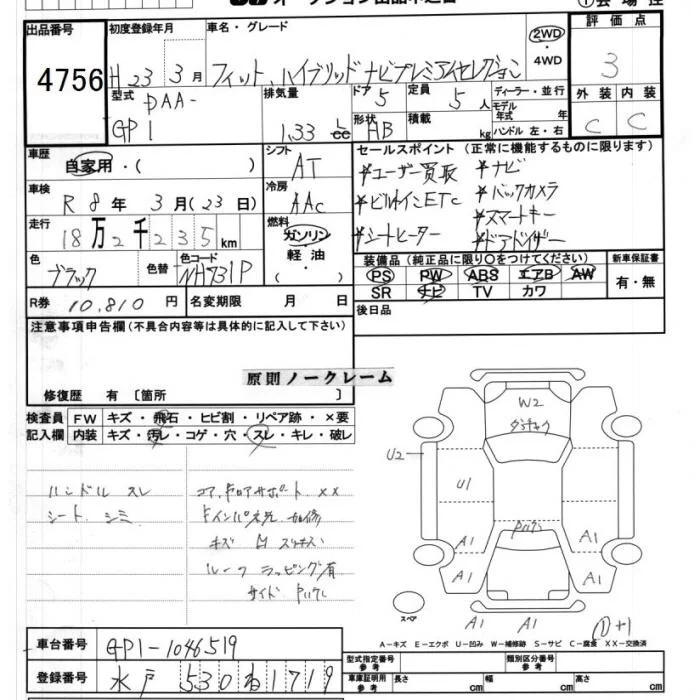 出品番号 初度登録年月 車名・グレード 2WD ・ 4WD 評価点
4756 H 23 3月 フィット ハイブリッド ナビプレミアムセレクション 3
型式 DAA- GP1 排気量 1.33 L cc ドア 5 定員 5人 ディーラー・並行
形状 HB 積載 kg モデル年式 年 ハンドル 左・右 外装 C 内装 C
車歴 自家用・( ) シフト AT セールスポイント (正常に機能するものに限ります)
車検 R 8年 3月(23日) 冷房 AAC
*ユーザー買取 *ナビ
*ビルトインETC *バックカメラ
*スマートキー
*シートヒーター *ドアバイザー
走行 18万2千235km 燃料 ガソリン 軽油 ( )
装備品 (純正品に限り○をつけてください) 新車保証書
色 ブラック 色替 色コード NH731P PS PW ABS エアB AW 有・無
SR ナビ TV カワ
R券 10,810円 名変期限 月 日 後日品
注意事項申告欄(不具合内容等は具体的に記入して下さい)
原則ノークレーム
修復歴 有 〔箇所 〕
検査員 FW キズ・飛石・ヒビ割・リペア跡・×要
記入欄 内装 キズ・汚レ・コゲ・穴・スレ・キレ・破レ
ハンドル スレ コア,ドロアサポート XX
シート シミ
キズ
ルーフ ラッピング有
サイド
W2
U2
U1
A1 A1
A1 A1
A1 A1
スペア
A-キズ E-エクボ U-凹み W-補修跡 S-サビ C-腐食 XX-交換済
車台番号 GP1-1046519 型式指定番号 参考 類別区分番号 参考
登録番号 水戸 530 ね 1719 車庫証明用 参考 長さ cm 幅 cm 高さ cm